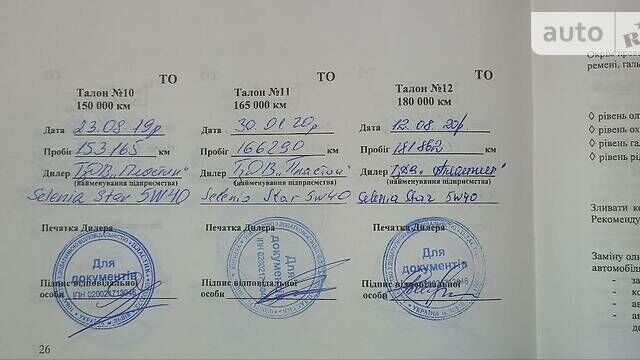 auto
ТО
ТО
ТО
Талон №10
150 000 км
Дата 23.08 19р
Пробіг 153.165 км
Дилер ТДВ "Пластик"
(найменування підприємства)
Selenia Star 5W40
Печатка Дилера
Для документів
ІПН
Підпис відповідальної особи
Талон №11
165 000 км
Дата 30.01 20р
Пробіг 166290 км
Дилер ТДВ "Пластик"
(найменування підприємства)
Selenia Star 5W40
Печатка Дилера
Для документів
Підпис відповідальної особи
Талон №12
180 000 км
Дата 12.08 20р
Пробіг 181862 км
Дилер ТДВ "Пластик"
(найменування підприємства)
Selenia Star 5W40
Печатка Дилера
Для документів
УКРАЇНА
Підпис відповідальної особи
26
ремені,
◊ рівень
◊ рівень
◊ рівень
◊ рівень
Зливати
Заміну